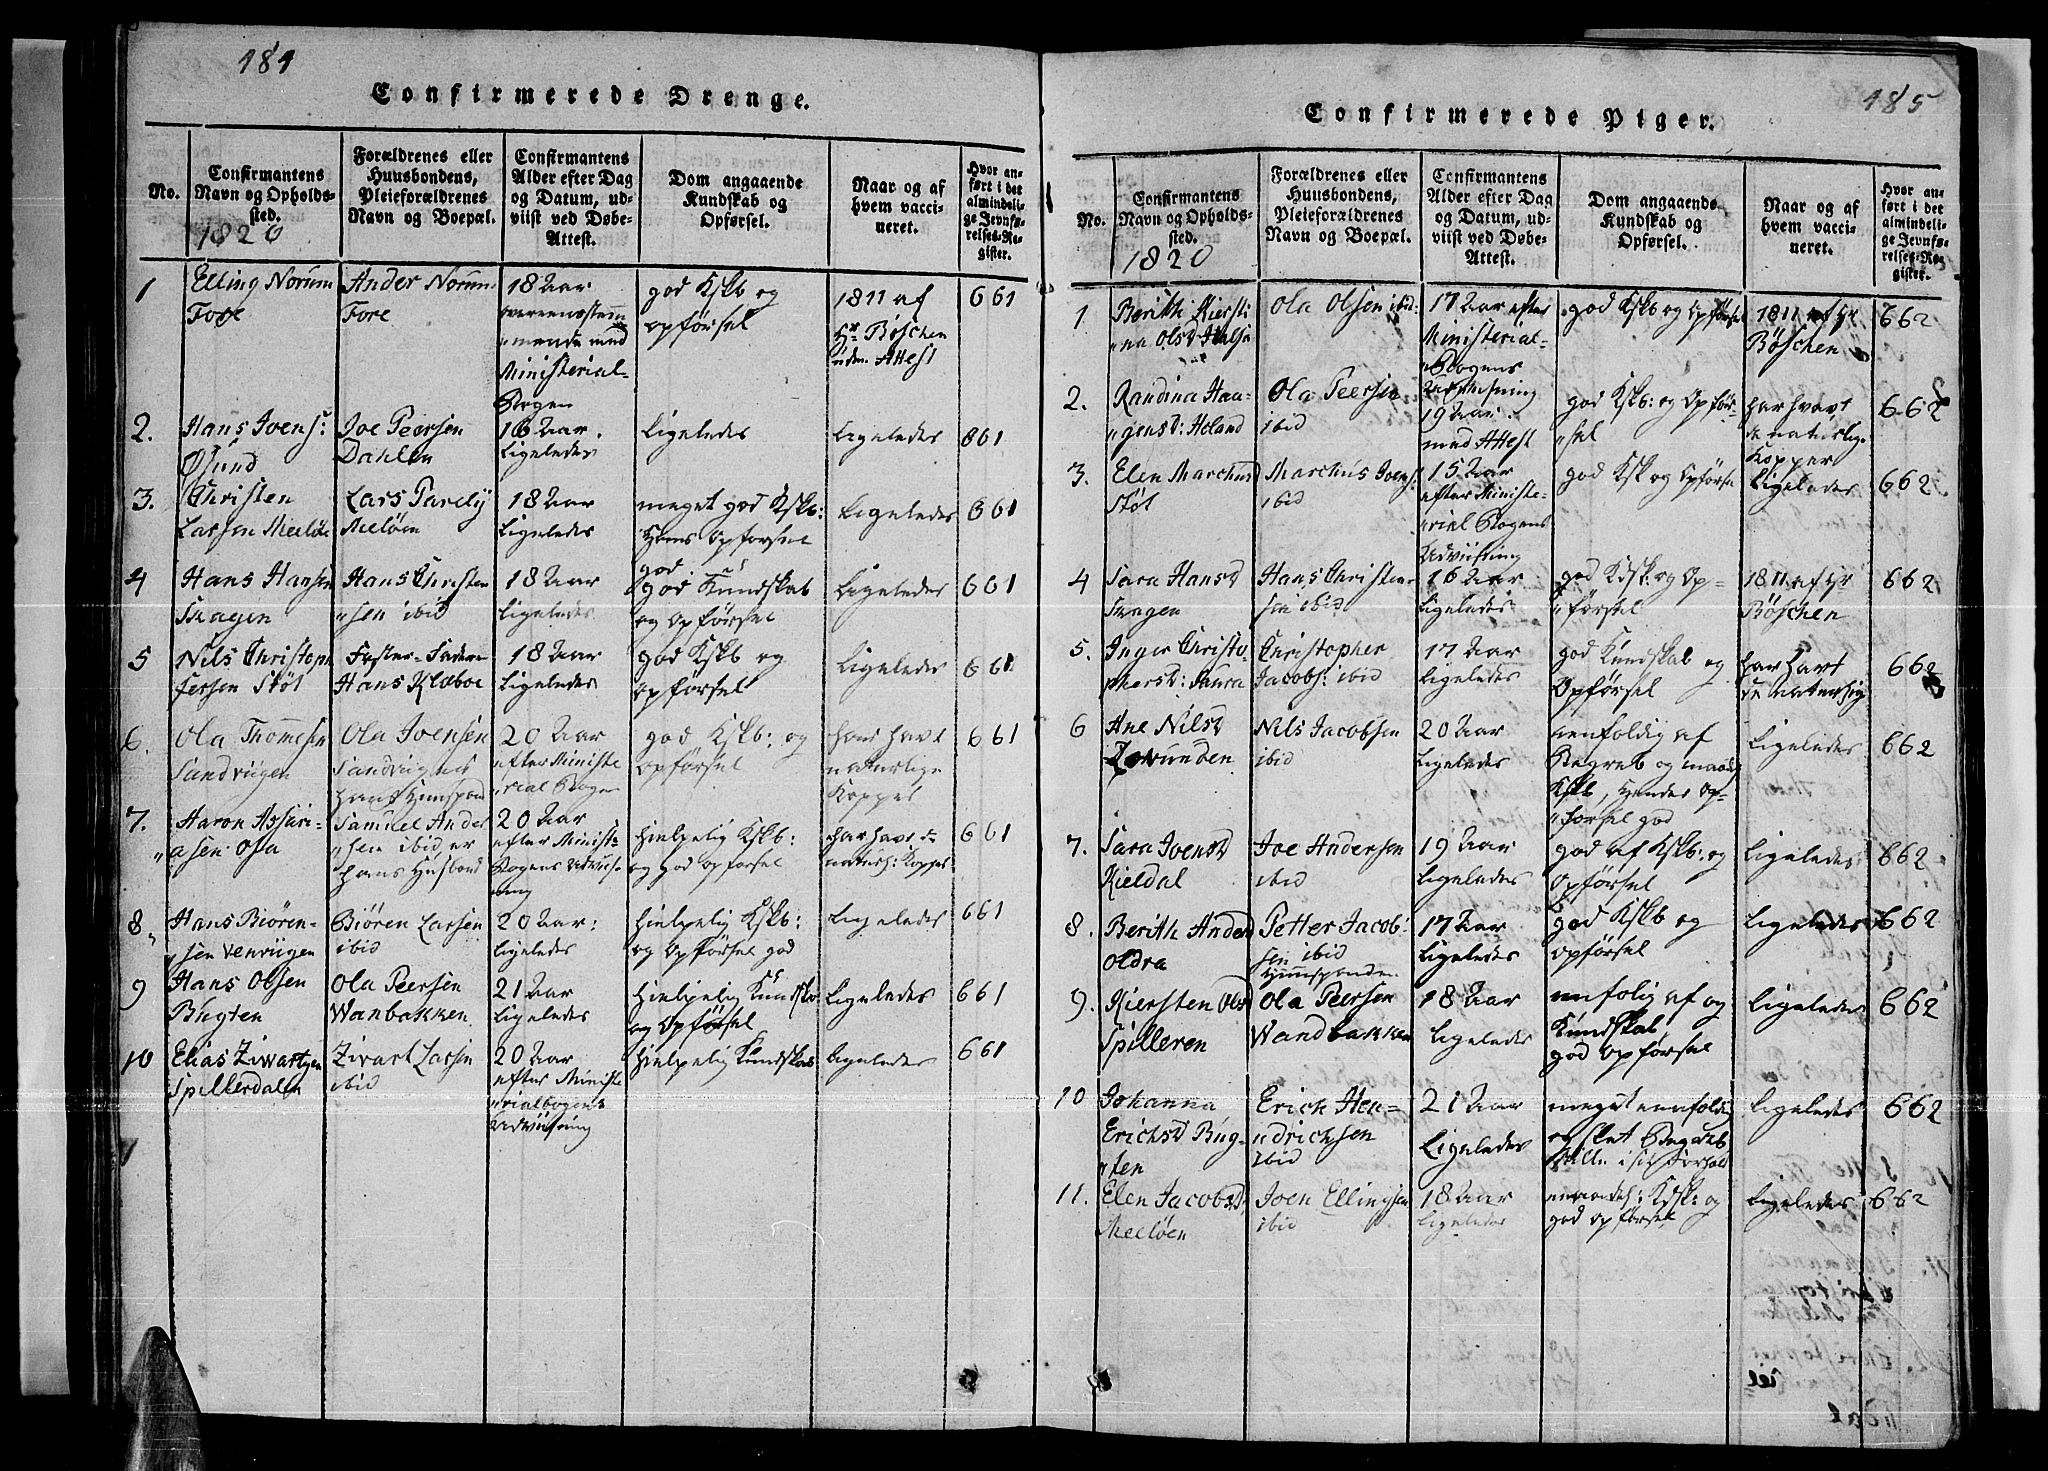 484
Confirmerede Drenge.
No.
Confirmantens
Navn og Opholds-
sted.
1820
Forældrenes eller
Huusbondens,
Pleieforældrenes
Navn og Boepæl.
Confirmantens
Alder efter Dag
og Datum, ud-
viist ved Døbe-
Attest.
Dom angaaende
Kundskab og
Opførsel.
Naar og af
hvem vacci-
neret.
Hvor an-
ført i det
almindeli-
ge Jevnfø-
relses-Re-
gister.
1
Elling Norum
Fore
Ander Norum
Fore
18 Aar
overeenstem
"mende med
Ministerial-
Bogen
god Kskb og
opførsel
1811 af
Hr Böschen
uden Attest
661
2.
Hans Joens:
Øsund
Joe Peersen
Dahlen
16 Aar.
Ligeledes
Ligeledes
Ligeledes
661
3.
Christen
Larsen Meelöe
Lars Parely
Meelöen
18 Aar
Ligeledes
meget god Kskb:
Hans Opførsel
god
Ligeledes
661
4
Hans Hansen
Skagen
Hans Christen
"sen ibid
18 Aar
Ligeledes
god Kundskab
og Opførsel
Ligeledes
661
5
Nils Christoph
fersen Stöt
Foster-Fadere
Hans Klæboe
18 Aar
Ligeledes
god Kskb og
Opførsel
Ligeledes
661
6.
Ola Thomesen
Sandvigen
Ola Joensen
Sandvigens
20 Aar
efter Ministe
"rial Bogen
god Kskb: og
opførsel
har havt
naturlige
Kopper
661
7.
Aaron Assari-
"asen Osa
Samuel Ander
"sen ibid er
hans Husbond
20 Aar
efter Ministe-
Bogens Udviis-
ning
Hielpelig Kskb:
og god opførsel
har havt de
naturl: Kopper
661
8.
Hans Biören-
"sen Venvigen
Biören Larsen
ibid
20 Aar:
Ligeledes
Hielpelig Kskb:
og Opførsel god
Ligeledes
661
9
Hans Olsen
Bugten
Ola Peersen
Wanbakken
21 Aar
Ligeledes
Hielpelig Kundskb
og Opførsel
Ligeledes
661
10
Elias Zivartsen
Spillerdalen
Zivart Larsen
ibid
20 Aar
efter Ministe
"rialbogens
Udviisning
Hielpelig Kundskab
Ligeledes
661
485
Confirmerede Piger.
No.
Confirmantens
Navn og Opholds-
sted.
1820
Forældrenes eller
Huusbondens,
Pleieforældrenes
Navn og Boepæl.
Confirmantens
Alder efter Dag
og Datum, ud-
viist ved Døbe-
Attest.
Dom angaaende
Kundskab og
Opførsel.
Naar og af
hvem vacci-
neret.
Hvor an-
ført i det
almindeli-
ge Jevnfø-
relses-Re-
gister.
1
Berith Kiersti
"na Olsd
Ola Olsen ibid:
17 Aar efter
Ministerial-
Bogens
Udviisning
god Kskb og Opførsel
1811 af Hr
Böschen
662
2.
Randina Haa-
"gensd: Heland
Ola Peersen
ibid
19 Aar
med Attest
god Kskb: og Opfør-
"sel
har havt
de naturlige
Kopper
662
3.
Elen Marchusd
Stöt
Marchus Joens:
ibid
15 Aar
efter Ministe-
"rial Bogens
Udviisning
god Ksk og Opførsel
Ligeledes
662
4
Sara Hansd
Skagen
Hans Christen-
sen ibid
16 Aar
Ligeledes
god Kdsk: og Op-
"førsel
1811 af Hr
Böschen
662
5.
Inger Christo-
phersd: Saura
Christopher
Jacobs: ibid
17 Aar
Ligeledes
god Kundskab og
Opførsel
har havt
de naturlig
662
6
Ane Nilsd
Zovunden
Nils Jacobsen
ibid
20 Aar
Ligeledes
eenfoldig af
Begreb og maadl
Kskb, Hendes Op-
"førsel god
Ligeledes
662
7.
Sara Joensd
Kieldal
Joe Andersen
ibid
19 Aar
Ligeledes
god af Kskb: og
Opførsel
Ligeledes
662
8.
Berith Andersd
Oldra
Petter Jacob:
sen ibid
17 Aar
Ligeledes
god Kskb og
opførsel
Ligeledes
662
9.
Kiersten Olsd
Spilleren
Ola Peersen
Wandbakken
18 Aar
Ligeledes
eenfolig af og
Kundskab,
god Opførsel
Ligeledes
662
10
Johanna
Erichsd Bug-
"ten
Erich Hen-
"drichsen
ibid
21 Aar
Ligeledes
meget eenfoldig
og slet Begreb
stille i sit Forhold
Ligeledes
662
11.
Elen Jacobsd,
Meelöen
Joen Ellingsen
ibid
18 Aar
Ligeledes
Kdsk: og
god opførsel
Ligeledes
662